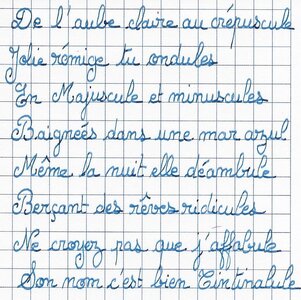 De l'aube claire au crépuscule
Jolie rémige tu ondules
En Majuscule et minuscules
Baignées dans une mar azul
Même la nuit elle déambule
Berçant des rêves ridicules
Ne croyez pas que j'affabule
Son nom c'est bien Tintinabule